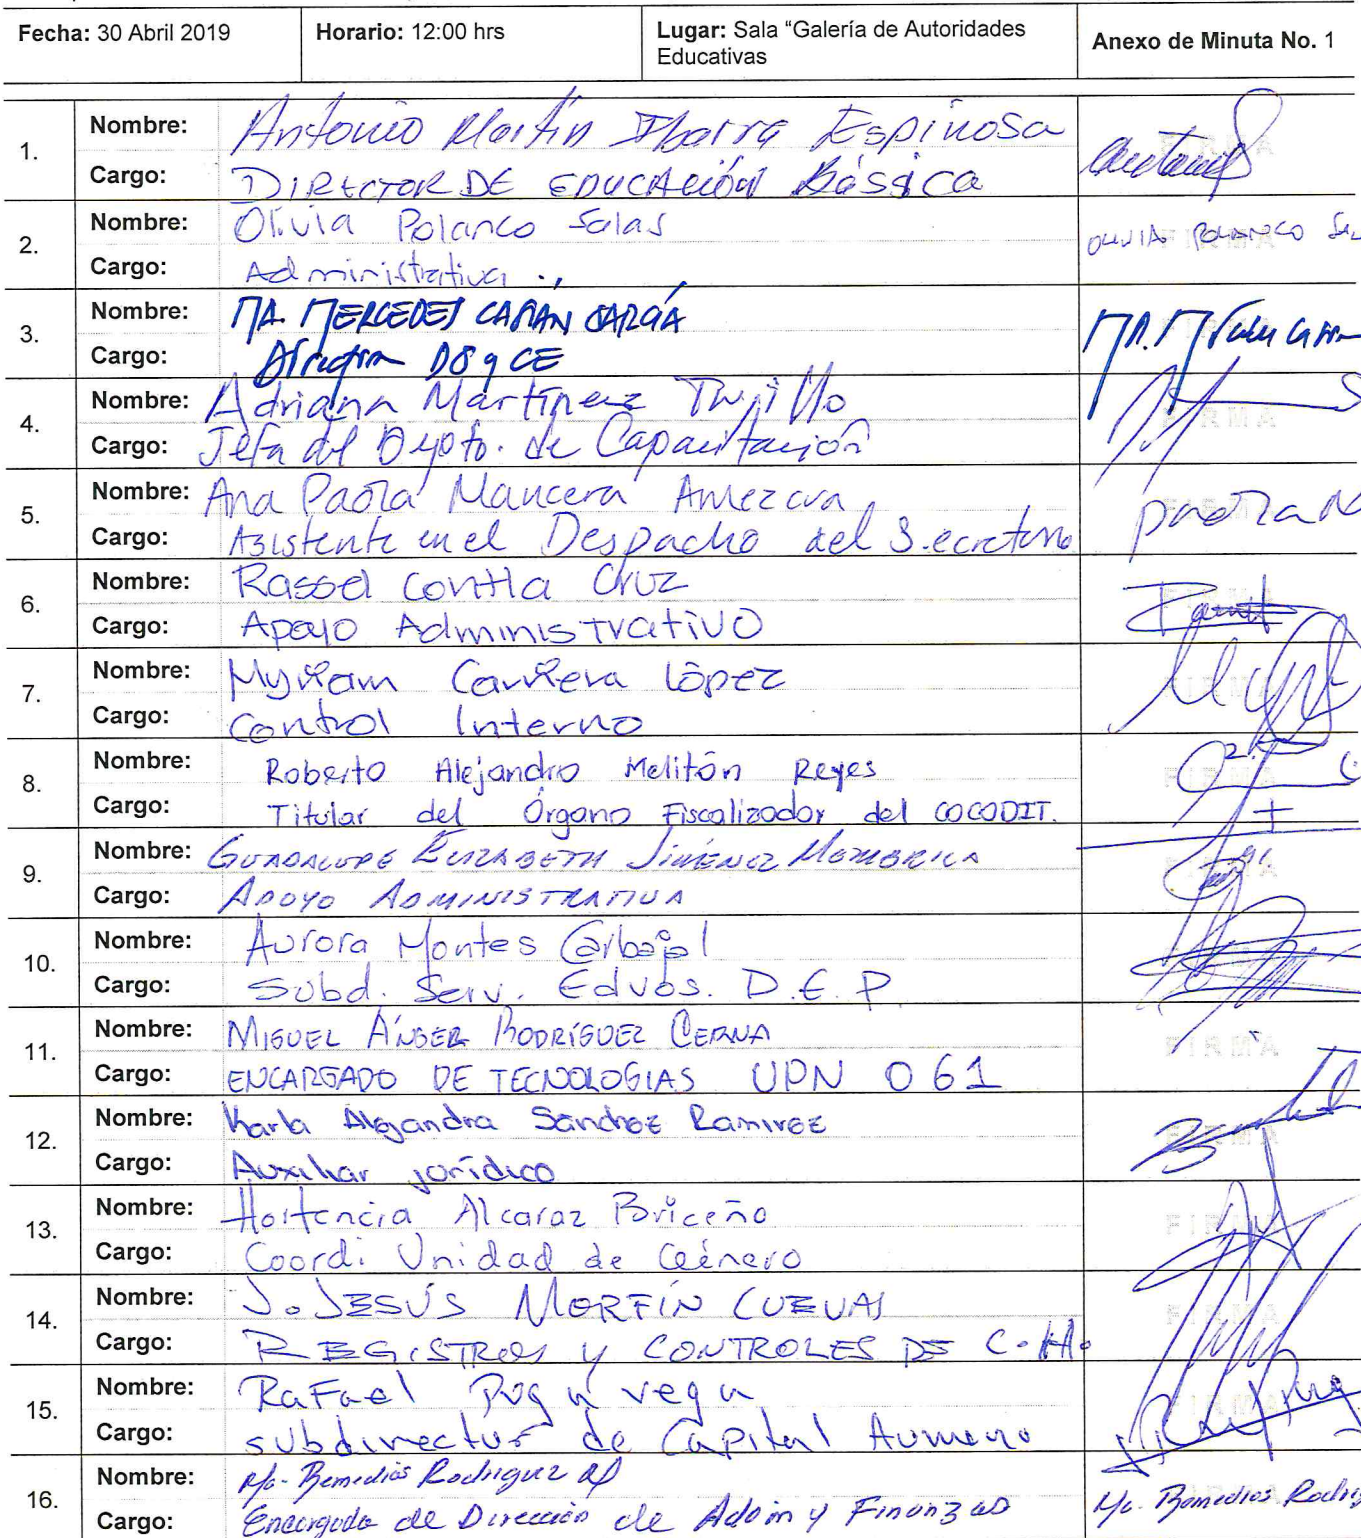 Fecha: 30 Abril 2019 Horario: 12:00 hrs Lugar: Sala “Galería de Autoridades Educativas Anexo de Minuta No. 1
1. Nombre: Antonio Martín Ibarra Espinosa
Cargo: DIRECTOR DE EDUCACIÓN Básica
FIRMA
2. Nombre: Olivia Polanco Salas
Cargo: Administrativa
OLIVIA POLANCO
FIRMA
3. Nombre: MA. MERCEDES GARCÍA
Cargo: Directora
4. Nombre: Adriana Martínez Trujillo
Cargo: Jefa del Depto. de Capacitación
FIRMA
5. Nombre: Ana Paola Mancera Amezcua
Cargo: Asistente en el Despacho del Secretario
6. Nombre: Rassel Contla Cruz
Cargo: Apoyo Administrativo
FIRMA
7. Nombre: Myriam Carrera López
Cargo: Control Interno
8. Nombre: Roberto Alejandro Melitón Reyes
Cargo: Titular del Órgano Fiscalizador del COCODIT.
FIRMA
9. Nombre: GUADALUPE ELIZABETH JIMÉNEZ
Cargo: APOYO ADMINISTRATIVA
FIRMA
10. Nombre: Aurora Montes Carbajal
Cargo: Subd. Serv. Edvos. D.E.P
11. Nombre: MIGUEL ÁNGEL RODRÍGUEZ CERNA
Cargo: ENCARGADO DE TECNOLOGIAS UPN 061
FIRMA
12. Nombre: Karla Alejandra Sánchez Ramirez
Cargo: Auxiliar jurídico
FIRMA
13. Nombre: Hortencia Alcaraz Briceño
Cargo: Coordi Unidad de Género
FIRMA
14. Nombre: J. JESÚS MORFÍN CUEVAS
Cargo: REGISTROS y CONTROLES DE C.H.
FIRMA
15. Nombre: RaFael Puga vega
Cargo: subdirector de Capital Humano
FIRMA
16. Nombre: Ma. Remedios Rodriguez
Cargo: Encargada de Dirección de Admin y Finanzas
Ma. Remedios